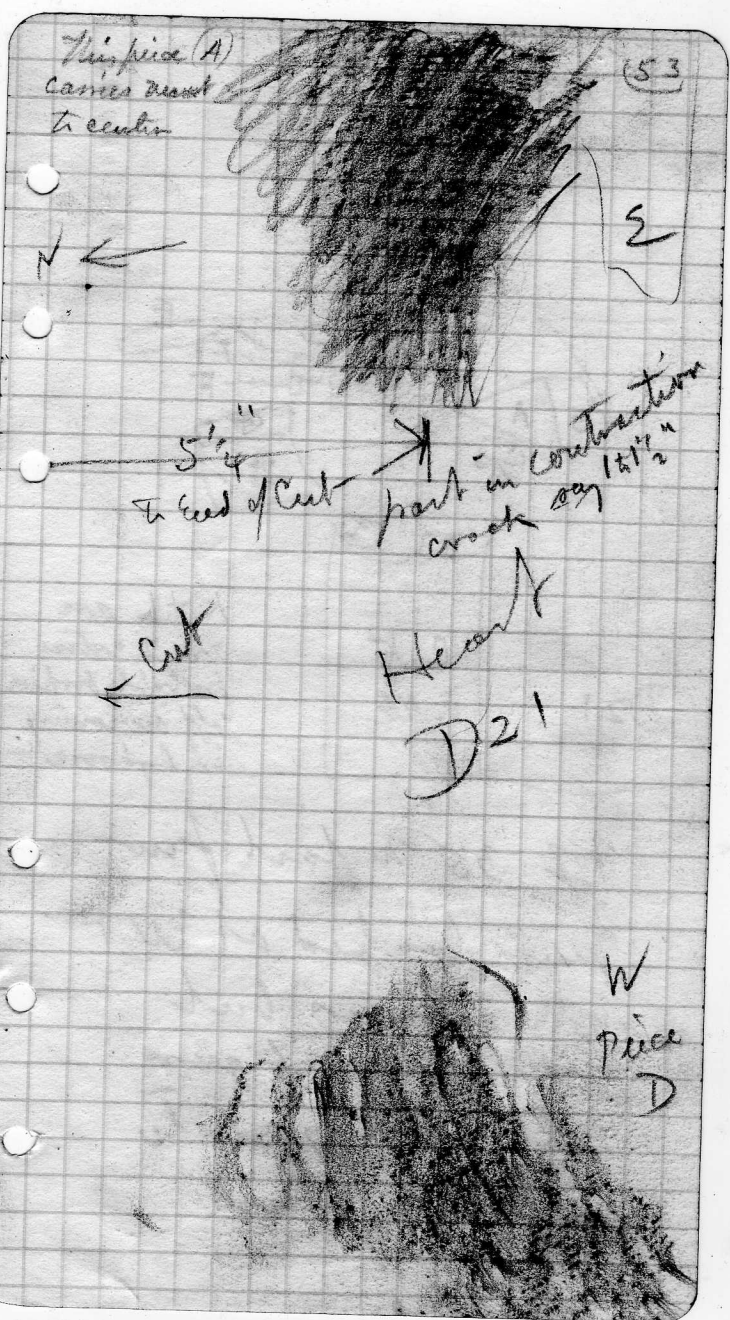 This piece (A)
carries
to center
53
N
E
5 1/4"
to End of Cut
part in contraction
crack say 1 to 1 1/2"
Cut
Heart
D21
W
Piece
D